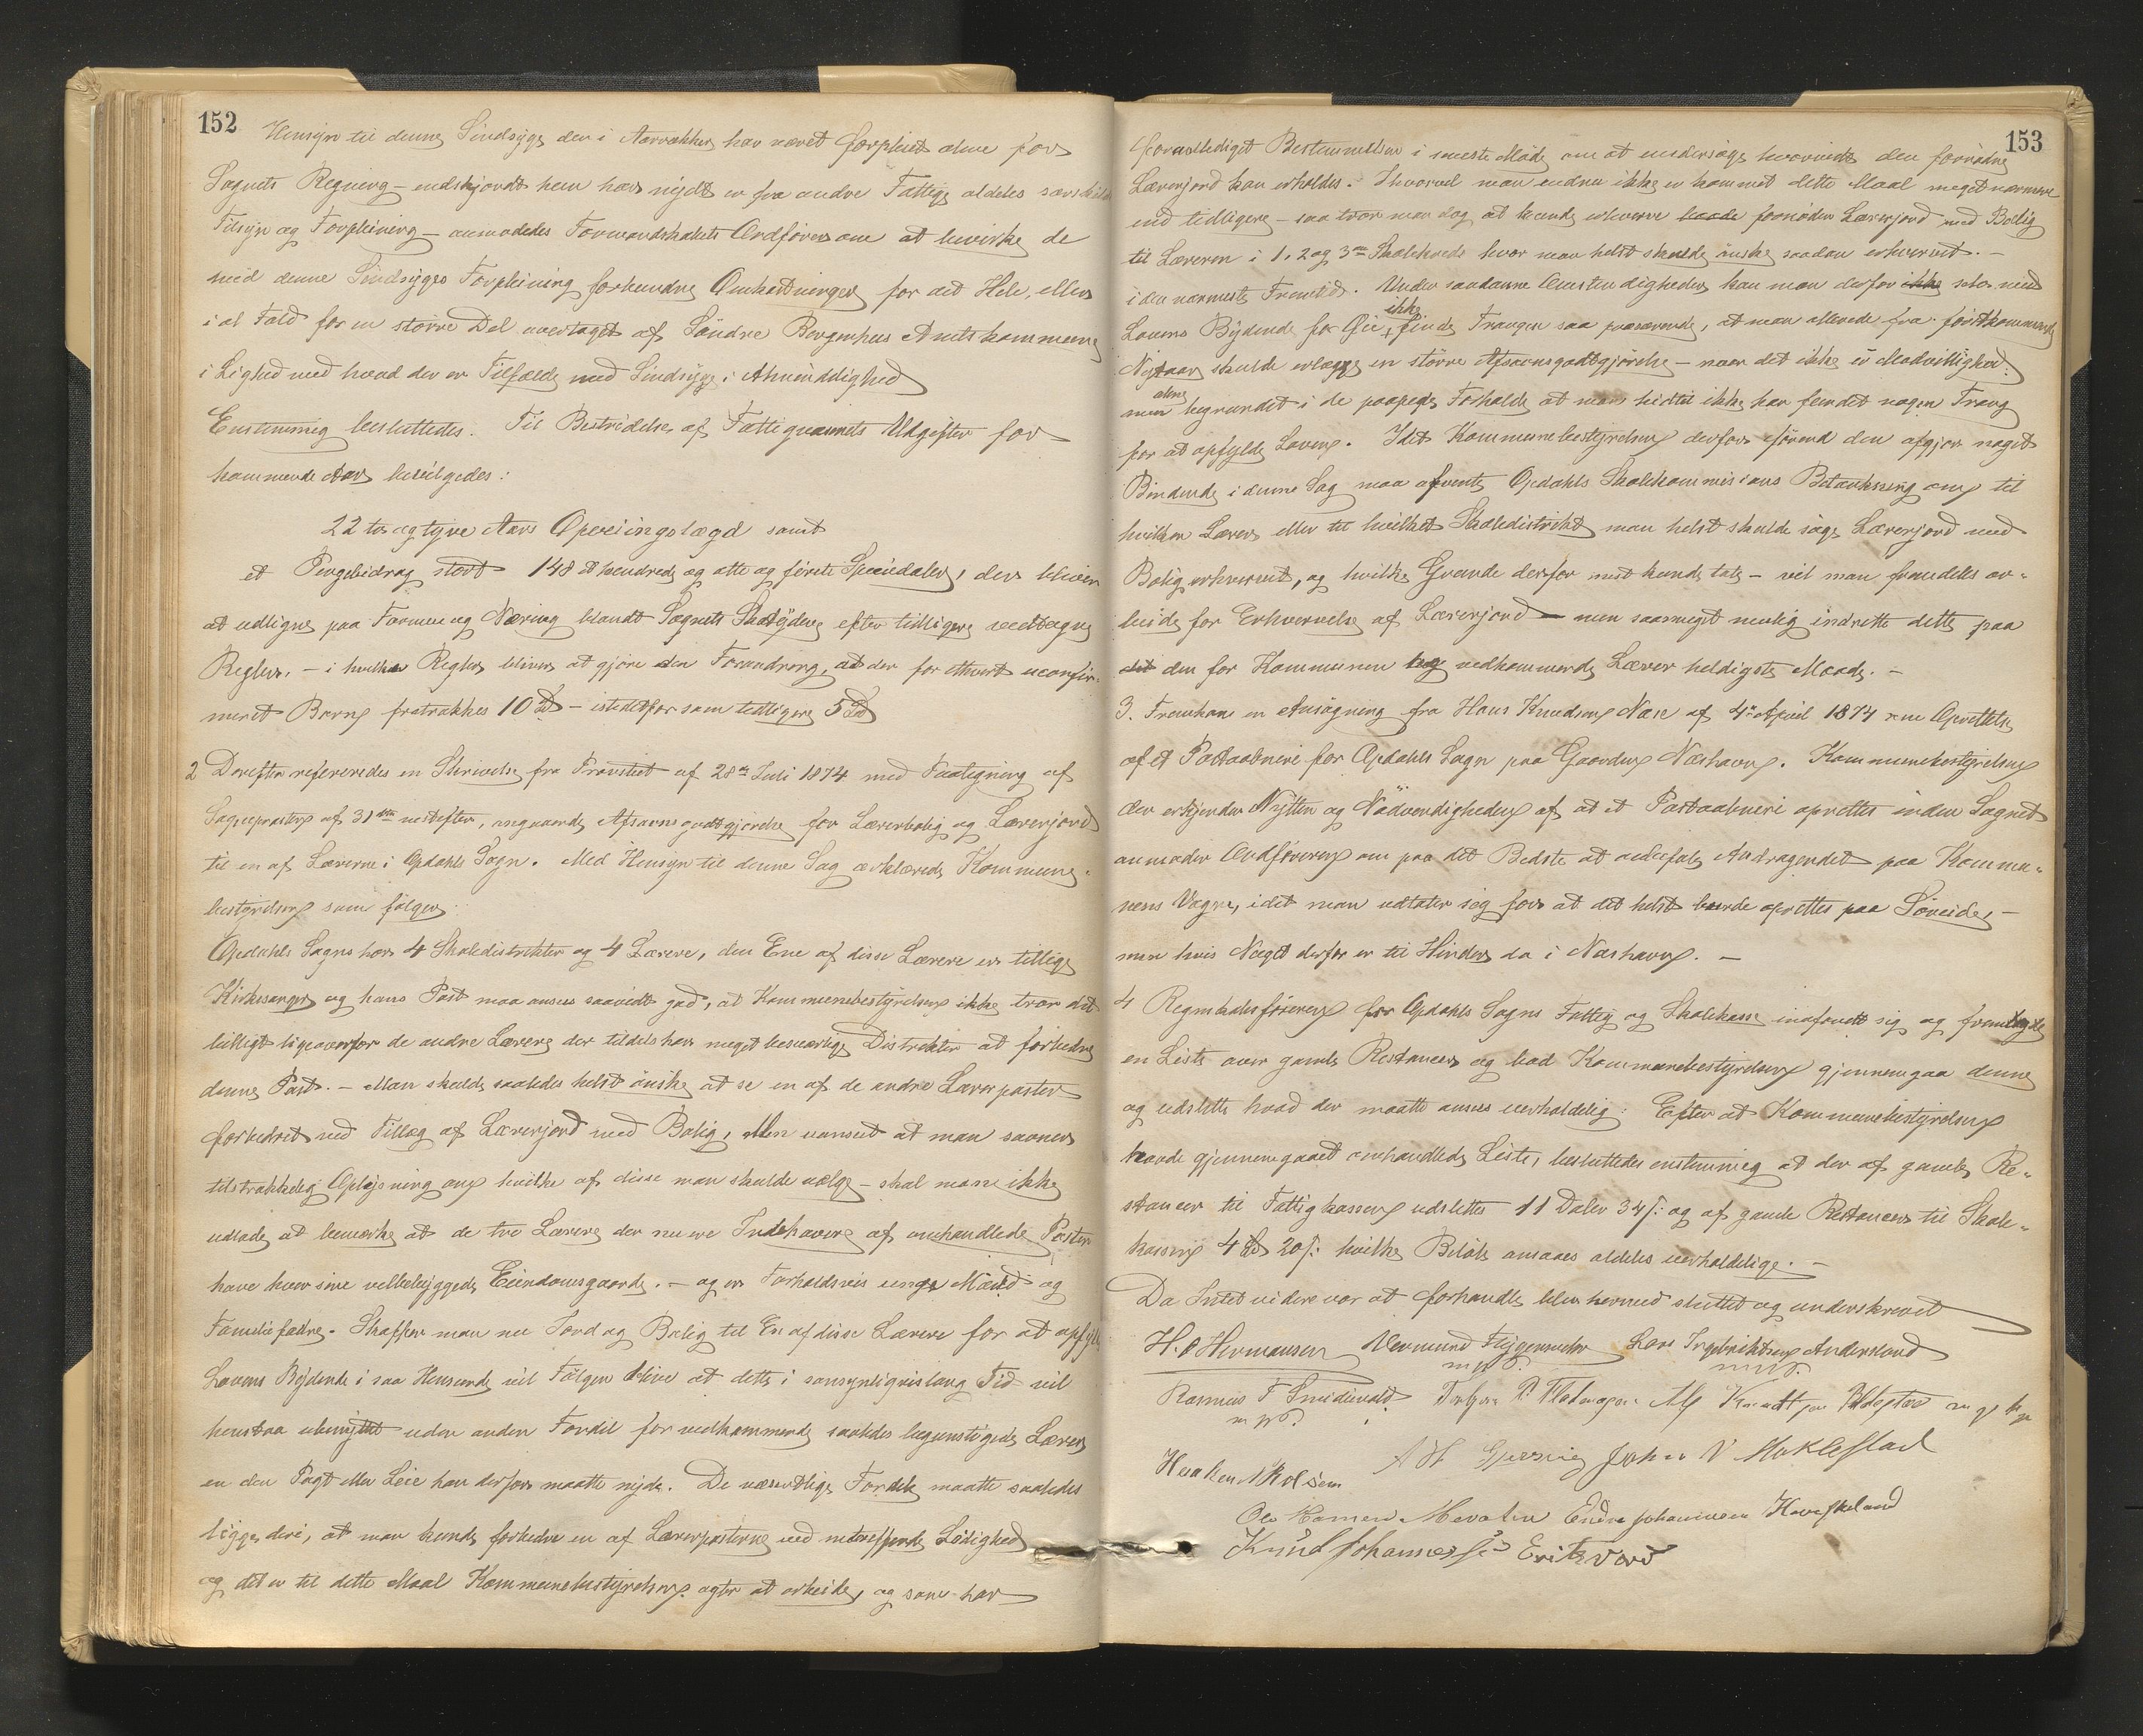 152
Hensyn til denne Sindsyge der i Aarrækker har været forpleiet alene for
Sognets Regning – endskjøndt hem har nydt en fra andre Fattige aldeles særskildt
Tilsyn og Forpleining – anmodedes Formandskabets Ordfører om at bevirke de
med denne Sindsyges Forpleining forbundne Omkostninger for det Hele, eller
i al Fald for en større Del overtaget af Søndre Bergenhus Amtskommune
i Lighed med hvad der er Tilfælde med Sindsyge i Almindelighed
Enstemmig besluttedes. Til Bestridelse af Fattigvæsenets Udgifter for
kommende Aar bevilgedes:
22 to og tyve Aars Opeiingslægd samt
et Pengebidrag stort 148 et hundrede og otte og firti Speciedaler, der bliver
at udligne paa Formue og Næring blandt Sognets Skatydere efter tidligere vedtagne
Regler. – i hvilke Regler bliver at gjøre den Forandring, at der for ethvert uconfir-
meret Barn fratrækkes 10 Spd – istedetfor som tidligere 5 Spd
2 Derefter refereredes en Skrivelse fra Provstiet af 28de Juli 1874 med Paategning af
Sognepresten af 31te næstefter, angaaende Afsavnsgodtgjørelse for Lærerbolig og Lærerjord
til en af Lærerne i Opdahls Sogn. Med Hensyn til denne Sag erklærede Kommune-
bestyrelsen som følger:
Opdahls Sogn har 4 Skoledistrikter og 4 Lærere, den Ene af disse Lærere er tillige
Kirkesanger og hans Post maa ansees saavidt god, at Kommunebestyrelsen ikke tror det
billigt ligeoverfor de andre Lærere der tildels har meget besværlige Distrikter at forbedre
denne Post. – Man skulde saaledes helst ønske at se en af de andre Lærerposter
forbedret ved Tillæg af Lærerjord med Bolig, Men uanseet at man savner
tilstrækkelig Oplysning om hvilke af disse man skulde vælge – skal man ikke
udlade at bemærke at de tre Lærere der nu ere Indehavere af omhandlede Poster
have hver sine velbebyggede Eiendomsgaarde. – og er Forholdsvis unge Mænd og
Familiefædre. Skaffer man nu Jord og Bolig til En af disse Lærere for at opfylde
Lovens Bydende i saa Henseende vil Følgen blive at dette i sansynligvis lang Tid vil
henstaa ubenyttet uden anden Fordel for vedkommende saaledes begunstigede Lærer
en den Pagt eller Leie han derfor maatte nyde. De væsentlige Fordele maatte saaledes
ligge deri, at man kunde forbedre en af Lærerposterne ved indtræffende Ledighed
og det er til dette Maal Kommunebestyrelsen agter at arbeide, og som har
153
foranlediget Bestemmelsen i seneste Møde om at undersøge hvorvidt den fornødne
Lærerjord kan erholdes. Ihvorvel man endnu ikke er kommet dette Maal meget nærmere
end tidligere – saa tror man dog at kunde erhverve baade fornøden Lærerjord med Bolig
til Læreren i 1, 2 og 3die Skolekreds hvor man helst skulde ønske saadan erhvervet. –
i den nærmeste Fremtid. Under saadanne Omstændigheder kan man derfor ikke selv med
Lovens Bydende for Øie, ikke finde Trangen saa præserende, at man allerede fra førstkommende
Nytaar skulde erlægge en større Afsavnsgodtgjørelse – naar det ikke er Modvillighed.
men alene begrundet i de paapegede Forholde at man hidtil ikke har fundet nogen Trang
for at opfylde Loven. Idet Kommunebestyrelsen derfor førend den afgjør noget
Bindende i denne Sag maa afvente Opdahls Skolekommisions Betænkning om til
hvilken Lærer eller til hvilket Skoledistrikt man helst skulde søge Lærerjord med
Bolig erhvervet, og hvilke Grunde derfor mest kunde tale – vil man fremdeles ar-
beide for Erhvervelse af Lærerjord – men saameget mulig indrette dette paa
det den for Kommunen og vedkommende Lærer heldigste Maade. –
3. Fremkom en Ansøgning fra Hans Knudsen Næse af 4de April 1874 om Oprettelse
af et Postaabneri for Opdahls Sogn paa Gaarden Næshavn. Kommunebestyrelsen
der erkjender Nytten og Nødvendigheden af at et Postaabneri oprettes inden Sognet
anmoder Ordføreren om paa det Bedste at anbefale Andragendet paa Kommu-
nens Vegne, idet man udtaler sig for at det helst burde oprettes paa Søreide, –
men hvis Noget derfor er til Hinder da i Næshavn. –
4 Regnskabsføreren for Opdahls Sogns Fattig og Skolekasse indfandt sig og fremlagde
en Liste over gamle Restancer og bad Kommunebestyrelsen gjennemgaa denne
og udslette hvad der maatte ansees uerholdelig: Efter at Kommunebestyrelsen
havde gjennemgaaet omhandlede Liste, besluttedes enstemmig at der af gamle Re-
stancer til Fattigkassen udslettes 11 Daler 34 s: og af gamle Restancer til Skole-
kassen 4 Spd 20 s: hvilke Beløb ansaaes aldeles uerholdelige. –
Da Intet videre var at forhandle blev hermed sluttet og underskrevet
H. O Hermansen Vermund Flygansvær Lars Ingebrigtsen Anderland
m p P. m p P.
Rasmus T Smedevold Torbjørn
m p P.
Haaken N Rolsem A H Gjersvig John N Møklestad
Ole Hansen Mevatn Endre Johannesen Haveskeland
Knud Johannessen Eritsvard